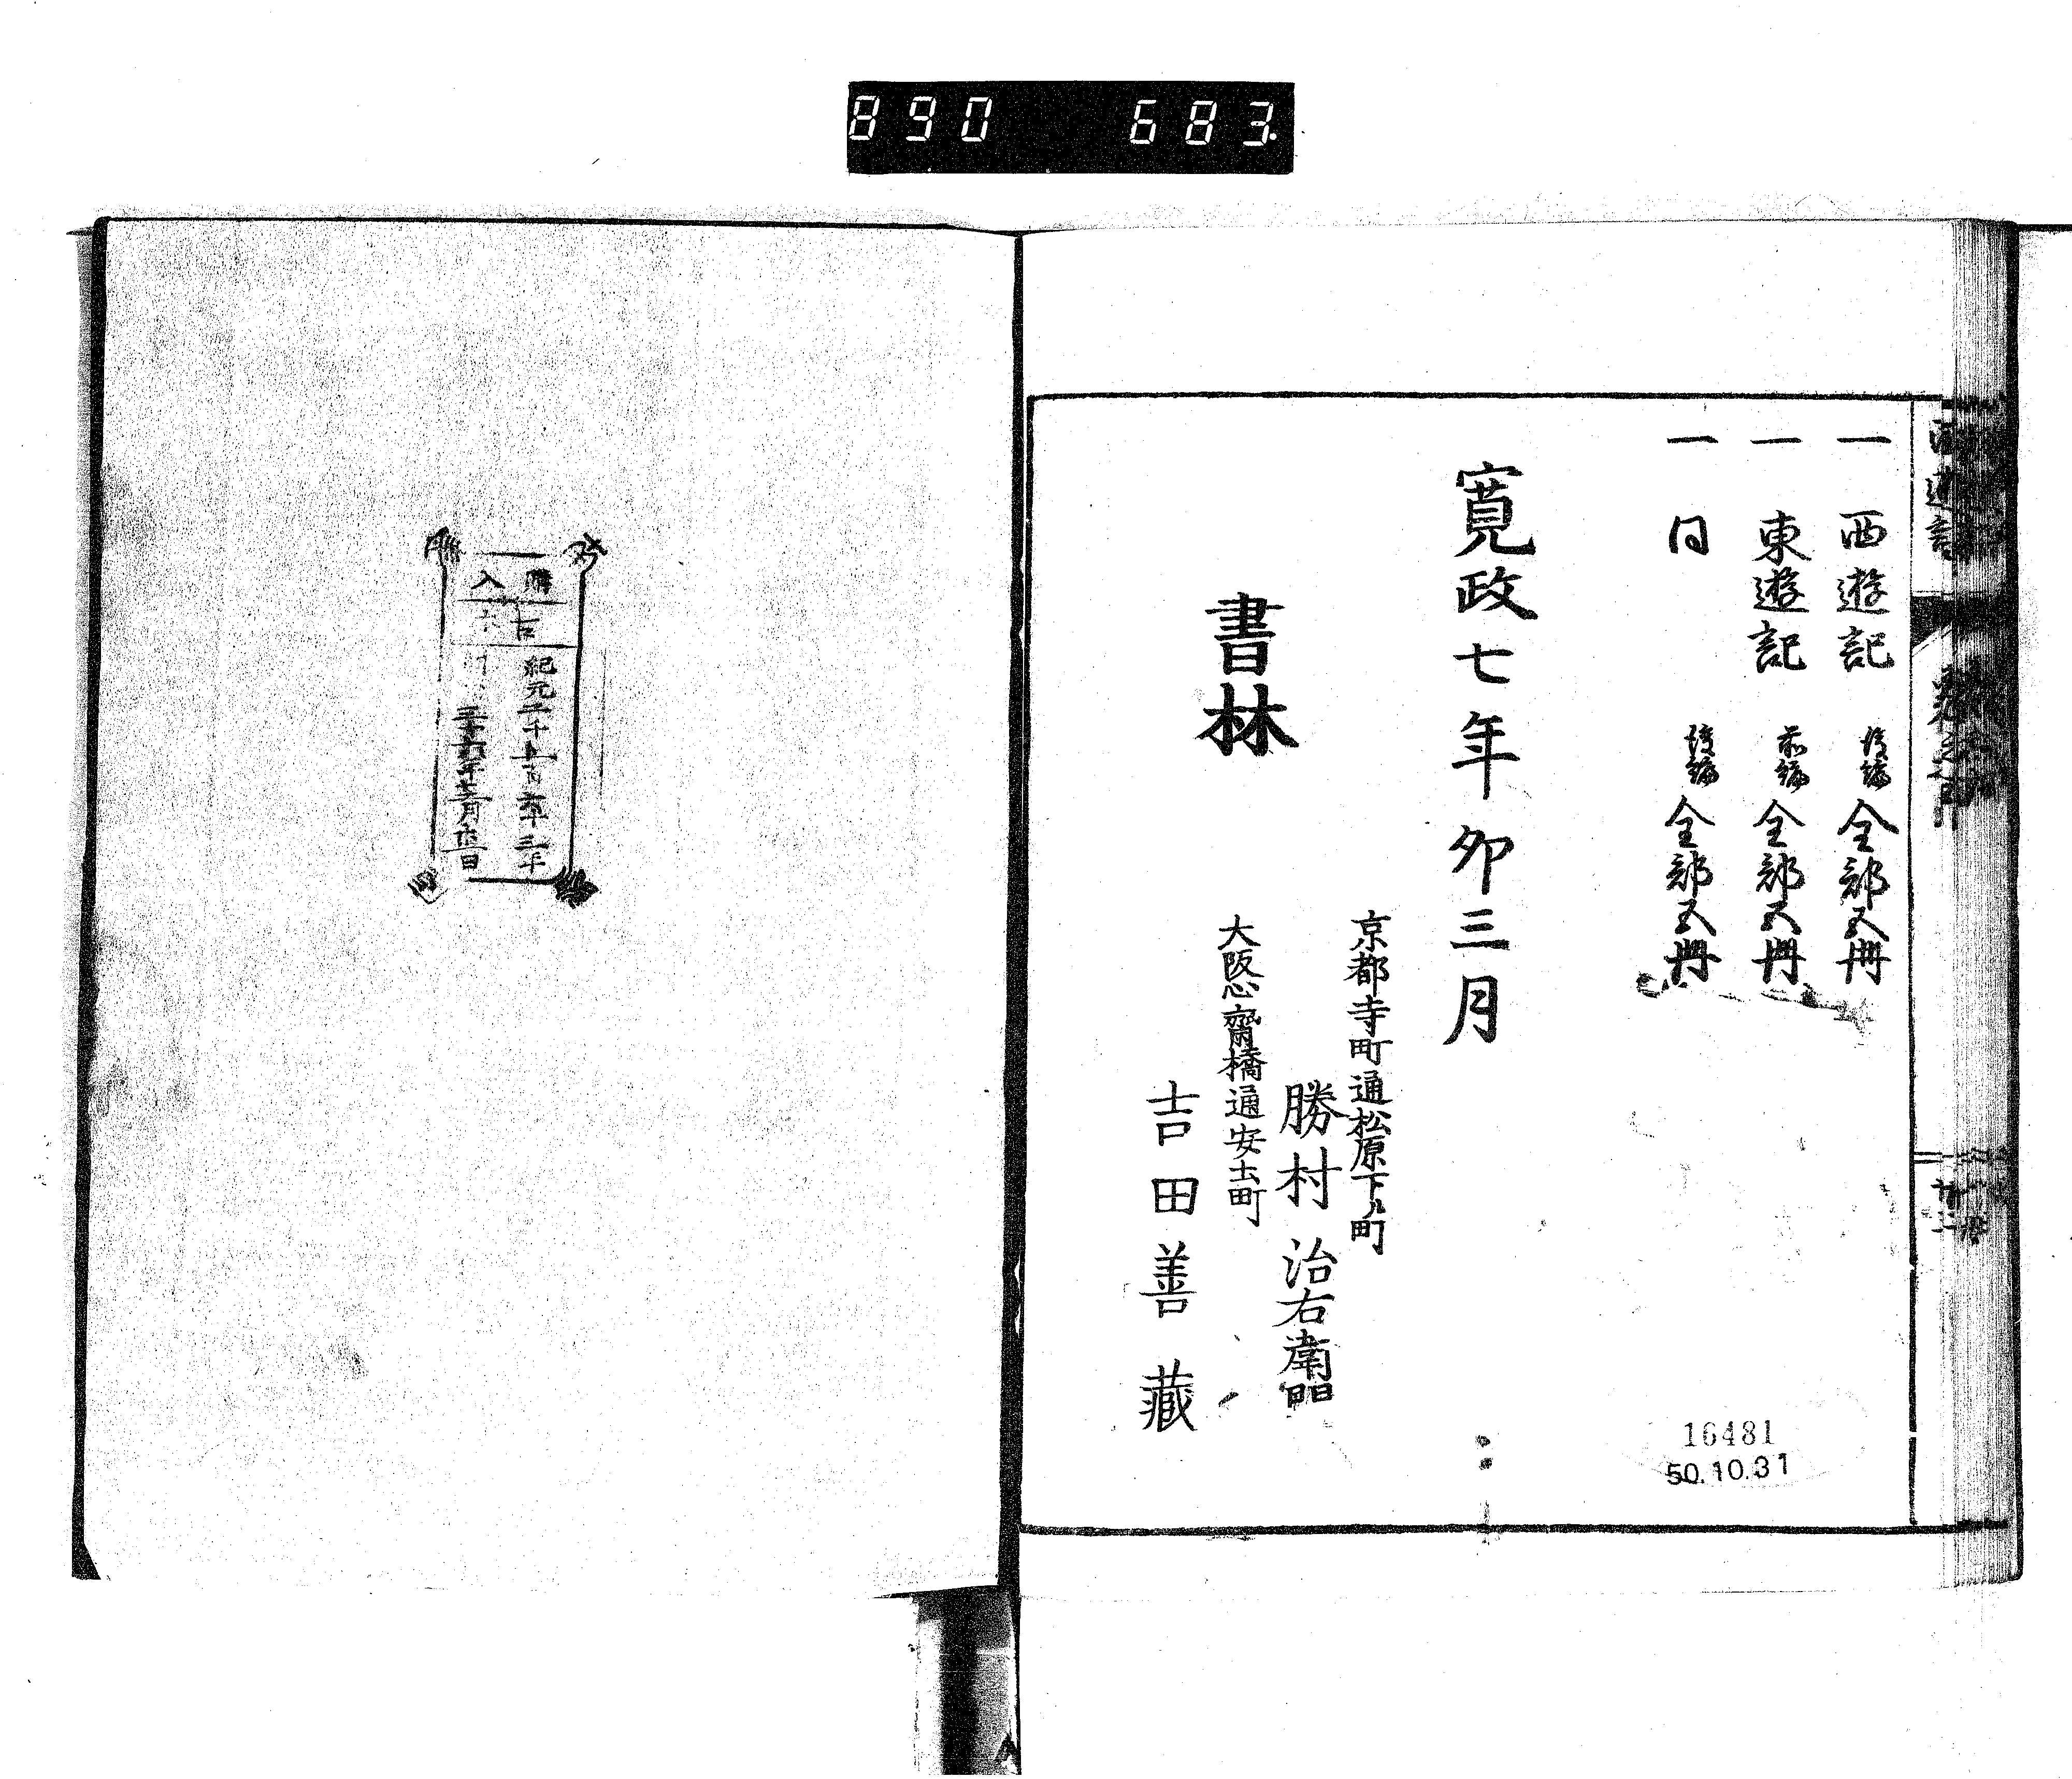 890 683
一 西遊記 後編 全部五冊
一 東遊記 前編 全部五冊
一 同 後編 全部五冊
寛政七年卯三月
書林
京都寺町通松原下ル町
勝村治右衛門
大阪心齋橋通安土町
吉田善藏
16481
50.10.31
購入
紀元二千五百六十三年